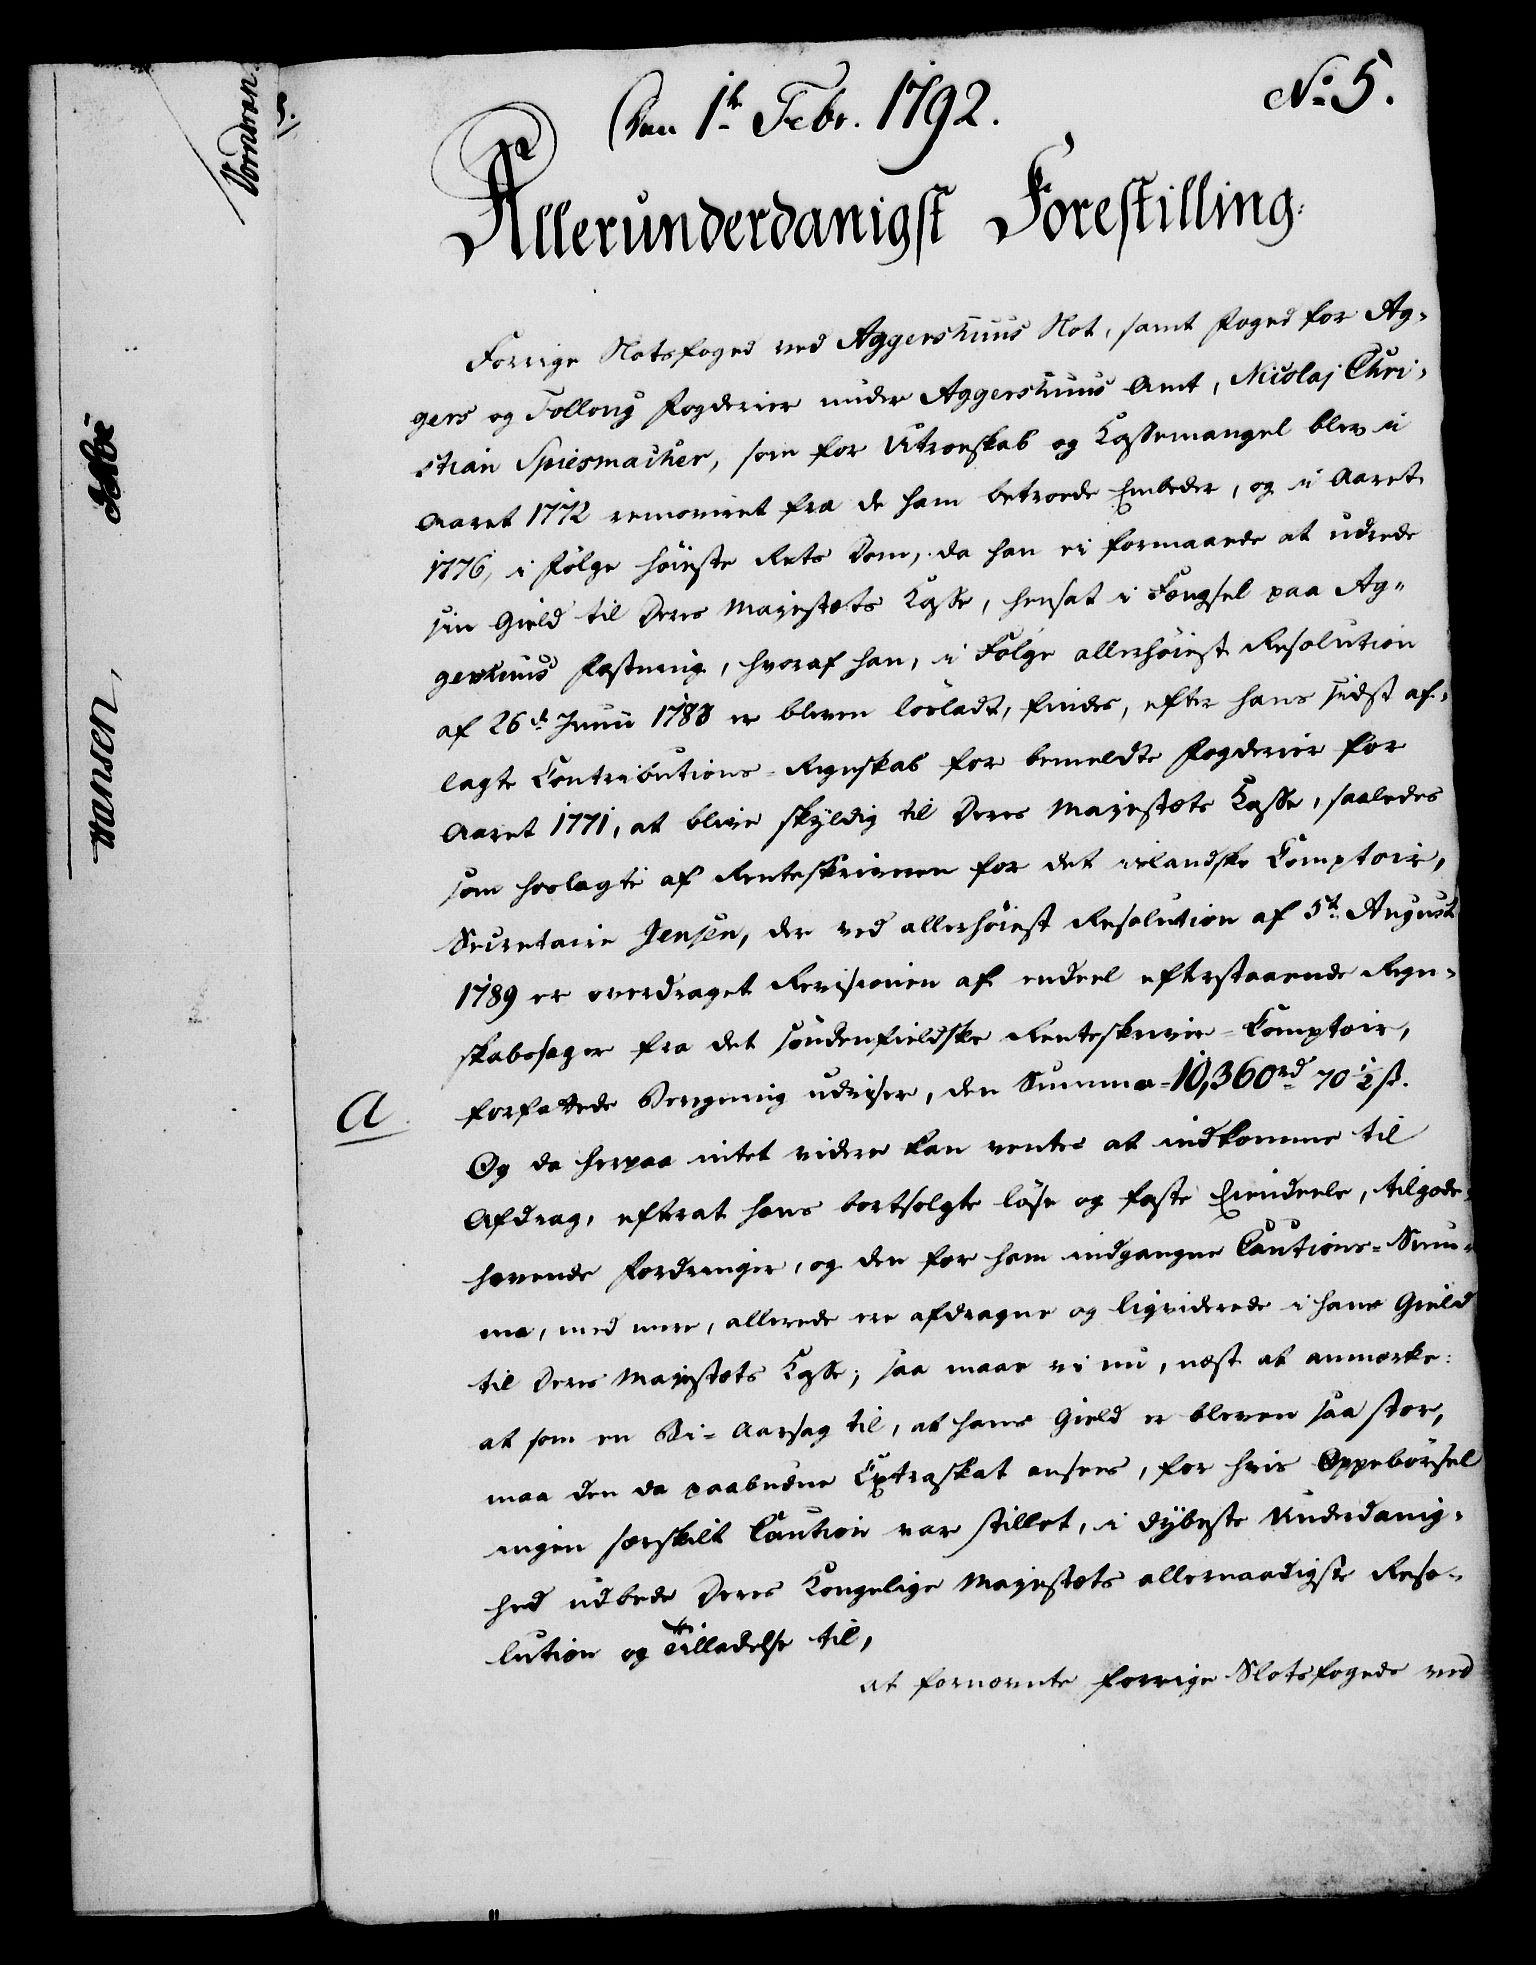 No 5.
Den 1te Febr. 1792.
Allerunderdanigst Forestilling.
Forrige Slotsfoged ved Aggershuus Slot, samt Foged for Ag-
gers og Follong Fogderier under Aggershuus Amt, Nicolaj Chri-
stian Spiesmacher, som for Utroeskab og Kassemangel blev i
Aaret 1772 removeret fra de ham betroede Embeder, og i Aaret
1776, i Følge høieste Rets Dom, da han ei formaaede at udrede
sin Gield til Deres Majestæts Kasse, hensat i Fængsel paa Ag-
gershuus Fæstning, hvoraf han, i Følge allerhøiest Resolution
af 26d Junii 1788 er bleven løsladt, findes, efter hans sidst af-
lagte Contributions-Regnskab for bemeldte Fogderier for
Aaret 1771, at blive skyldig til Deres Majestæts Kasse, saaledes
som hoslagte af Renteskriveren for det islandske Comptoir,
Secretaire Jensen, der ved allerhøiest Resolution af 5te August
1789 er overdraget Revisionen af endeel efterstaaende Regn-
skabssager fra det søndenfieldske Renteskriver-Comptoir,
a. forfattede Beregning udviser, den Summa 10,360rd 70 1/2 ß.
Og da herpaa intet videre kan ventes at indkomme til
Afdrag, efterat hans bortsolgte løse og faste Eiendeele, tilgode-
havende Fordringer, og den for ham indgangne Cautions-Sum-
ma, med mere, allerede ere afdragne og liqviderede i hans Gield
til Deres Majestæts Kasse; saa maae vi nu, næst at anmærke:
at som en Bi-Aarsag til, at hans Gield er bleven saa stor,
maa den da paabudne Extraskat ansees, for hvis Oppebørsel
ingen særskilt Caution var stillet, i dybeste Underdanig-
hed udbede Deres Kongelige Majestæts allernaadigste Reso-
lution og Tilladelse til,
at fornævnte forrige Slotsfogede ved